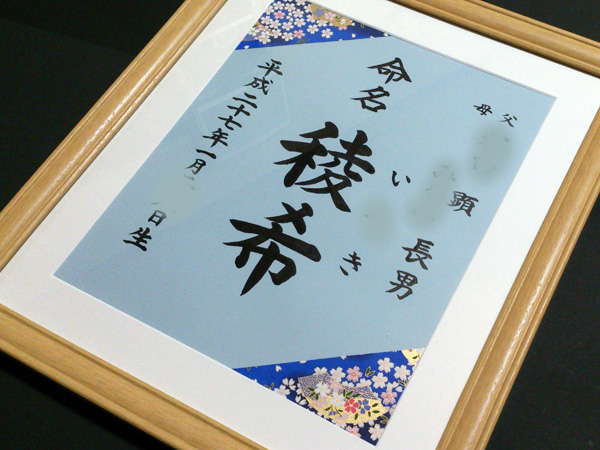 父
母
顕
長男
命名
稜希
い
き
平成二十七年一月
日生